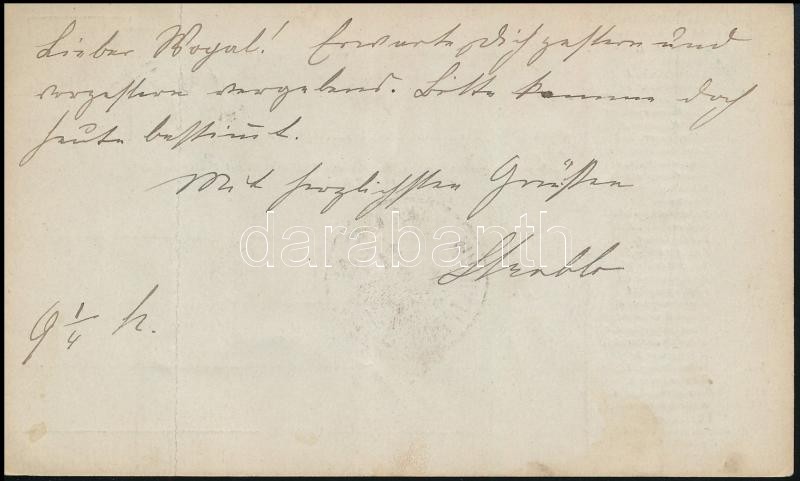 Lieber Wogal! Erwarte Dich gestern und
vorgestern vergebens. Bitte komme doch
heute bestimmt.
Mit herzlichsten Grüssen
darabanth
9 1/4 h.